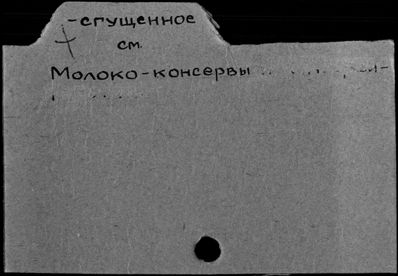 -сгущенное
см.
Молоко-консервы